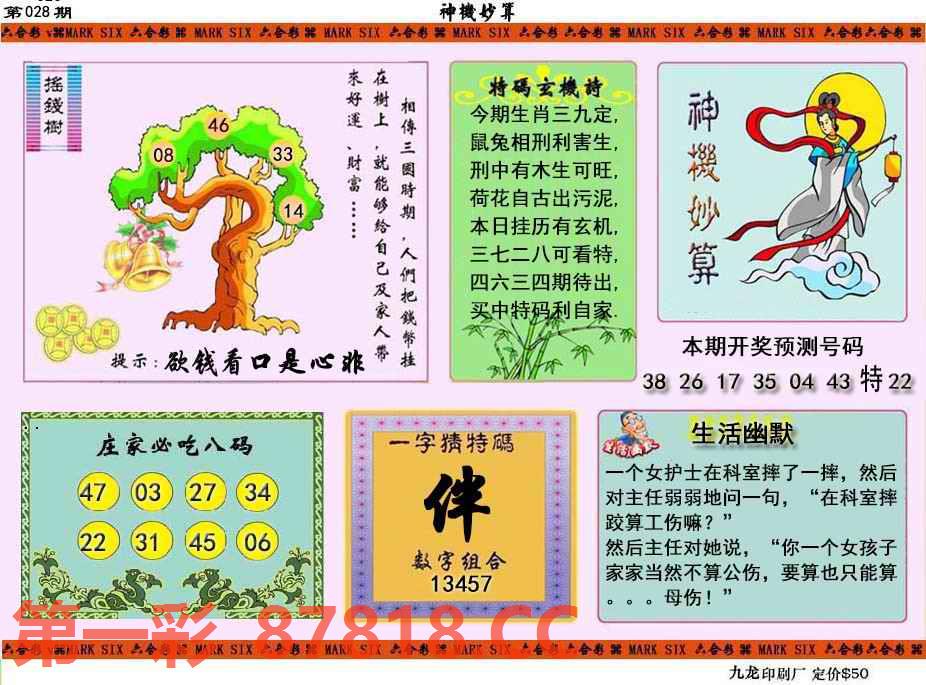 第028期
神機妙算
六合彩 MARK SIX 六合彩 MARK SIX 六合彩 MARK SIX 六合彩 MARK SIX 六合彩 MARK SIX 六合彩 MARK SIX 六合彩
搖錢樹
46
08
33
14
相傳三國時期,人們把錢幣挂
在樹上,就能够給自己及家人帶
來好運、財富……
提示:欲钱看口是心非
特碼玄機詩
今期生肖三九定,
鼠兔相刑利害生,
刑中有木生可旺,
荷花自古出污泥,
本日挂历有玄机,
三七二八可看特,
四六三四期待出,
买中特码利自家.
神機妙算
本期开奖预测号码
38 26 17 35 04 43 特22
庄家必吃八码
47 03 27 34
22 31 45 06
一字猜特碼
伴
数字组合
13457
生活幽默
生活幽默
一个女护士在科室摔了一摔，然后
对主任弱弱地问一句，“在科室摔
跤算工伤嘛？”
然后主任对她说，“你一个女孩子
家家当然不算公伤，要算也只能算
。。。母伤！”
第一彩 87818.CC
六合彩 MARK SIX 六合彩 MARK SIX 六合彩 MARK SIX 六合彩 MARK SIX 六合彩 MARK SIX 六合彩 MARK SIX 六合彩
九龙印刷厂 定价$50